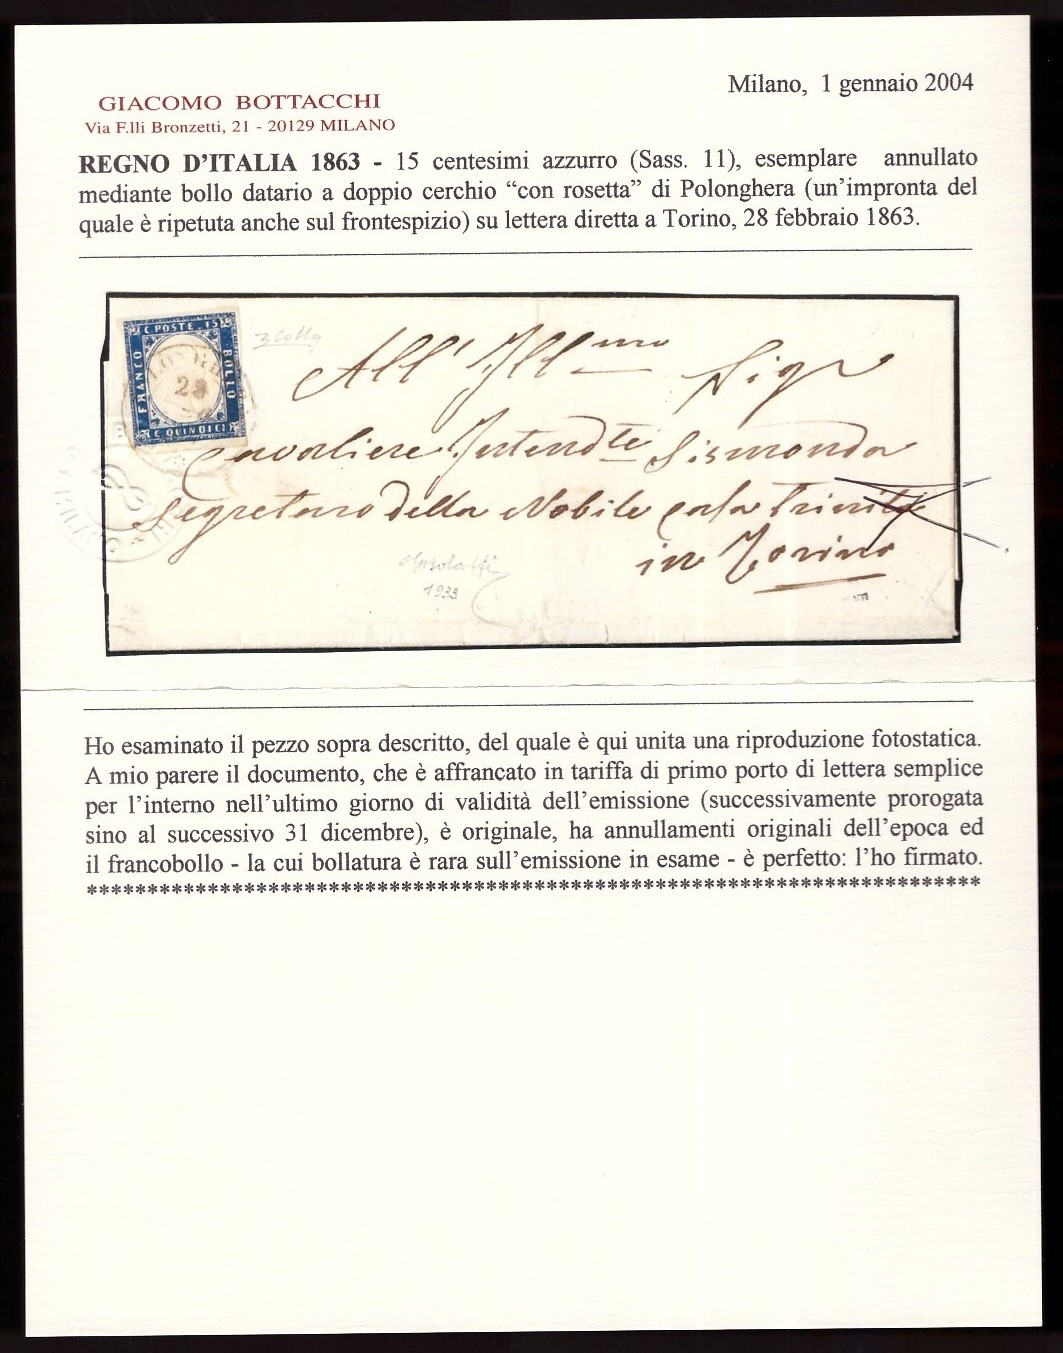 Milano, 1 gennaio 2004
GIACOMO BOTTACCHI
Via F.lli Bronzetti, 21 - 20129 MILANO
REGNO D'ITALIA 1863 - 15 centesimi azzurro (Sass. 11), esemplare annullato
mediante bollo datario a doppio cerchio “con rosetta” di Polonghera (un'impronta del
quale è ripetuta anche sul frontespizio) su lettera diretta a Torino, 28 febbraio 1863.
C POSTE. 15
FRANCO
BOLLO
C QUINDICI
28
All' Ill.mo Sigr
Cavaliere Intendte Sismonda
Segretaro della Nobile casa Trinità
in Torino
1933
Ho esaminato il pezzo sopra descritto, del quale è qui unita una riproduzione fotostatica.
A mio parere il documento, che è affrancato in tariffa di primo porto di lettera semplice
per l'interno nell'ultimo giorno di validità dell'emissione (successivamente prorogata
sino al successivo 31 dicembre), è originale, ha annullamenti originali dell'epoca ed
il francobollo - la cui bollatura è rara sull'emissione in esame - è perfetto: l'ho firmato.
**************************************************************************